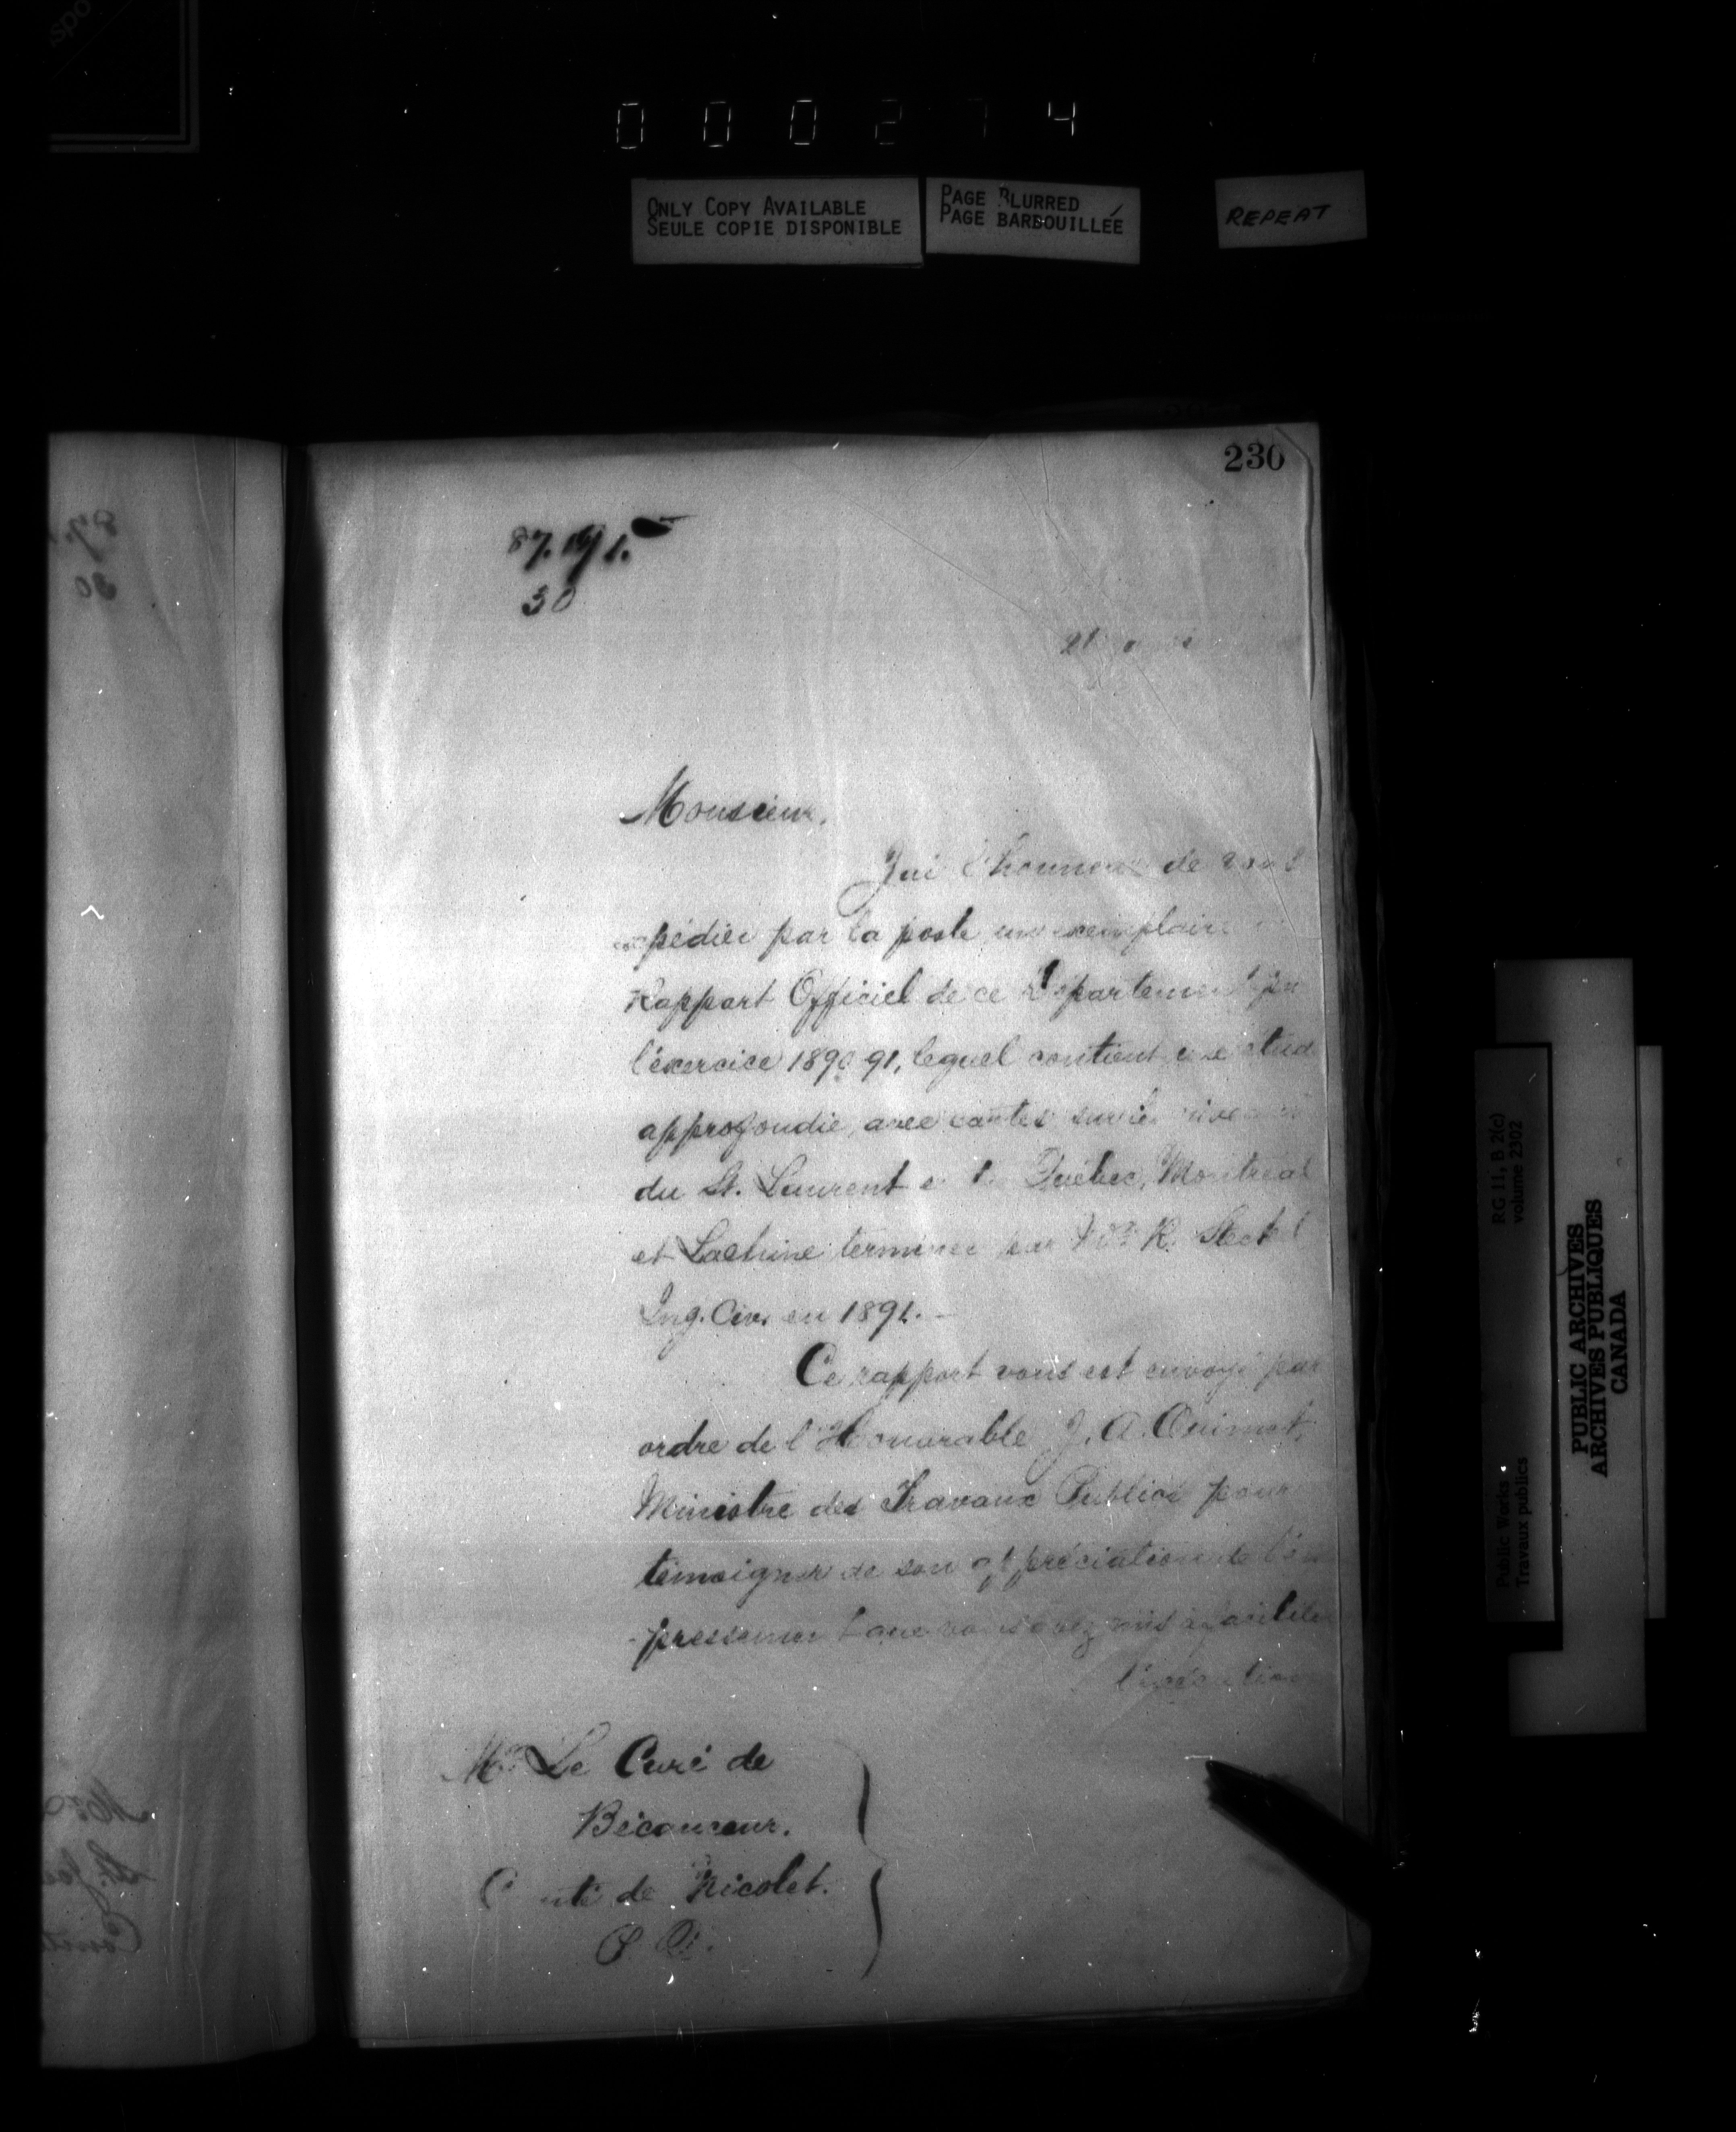 0 0 0 2 7 4
ONLY COPY AVAILABLE
SEULE COPIE DISPONIBLE
PAGE BLURRED
PAGE BARBOUILLÉE
REPEAT
230
30
Monsieur,
J'ai l'honneur de vous
expédier par la poste un exemplaire
Rapport Officiel de ce Département
l'exercice 1890 91, lequel contient une étude
approfondie, avec cartes sur les niveaux
du St. Laurent Québec, Montréal
et Lachine par R. Steckel
Ing. Civ. en 1891. -
Ce rapport vous est envoyé par
ordre de l'Honorable J. A. Ouimet,
Ministre des Travaux Publics pour
témoigner de son appréciation de l'em
-pressement que vous avez mis à faciliter
Mr. Le Curé de
Bécancour.
Comté de Nicolet.
P. Q.
RG 11, B 2(c)
volume 2302
Public Works
Travaux publics
PUBLIC ARCHIVES
ARCHIVES PUBLIQUES
CANADA